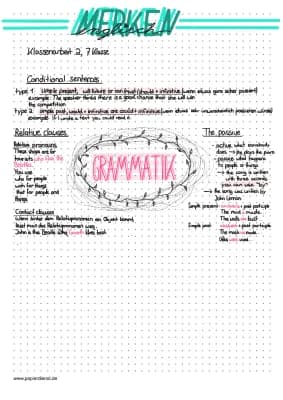 MERKEN
englisch
Klassenarbeit 2, 7 Klasse
Conditional sentences
type 1: simple present, will future or can/must/should + infinitive (wenn etwas ganz sicher passiert)
example: The speaker thinks there is a good chance that she will win
the competition
type 2: simple past, would + infinitive are could + infinitive (wenn etwas sehr unwahrscheinlich passieren würde)
example: If I wrote a text you could read it
Relative clauses
Relative pronouns
These shops are for
tourists who like the
Beatles.
You use
who for people
which for things
that for people and
things
Contact clauses
Wenn hinter dem Relativpronomen ein Objekt kommt,
lässt man das Relativpronomen weg.
John is the Beatle why Gareth likes best
GRAMMATIK
The passive
active: what somebody
does → He plays the piano
passive: what happens
to people or things
→ the song is written
with three seconds
you can use "by"
→ the song was written by
John Lennon
Simple present: am/are/is + past participle
The music is made
The walls are built
Simple past: was/were + past participle
The music was made
CDs were used
www.papierdirekt.de